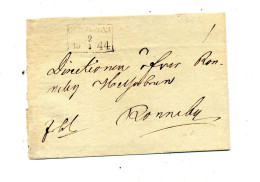 2
1 44
Directionen öfver Ron-
neby Helsobrun
Ronneby